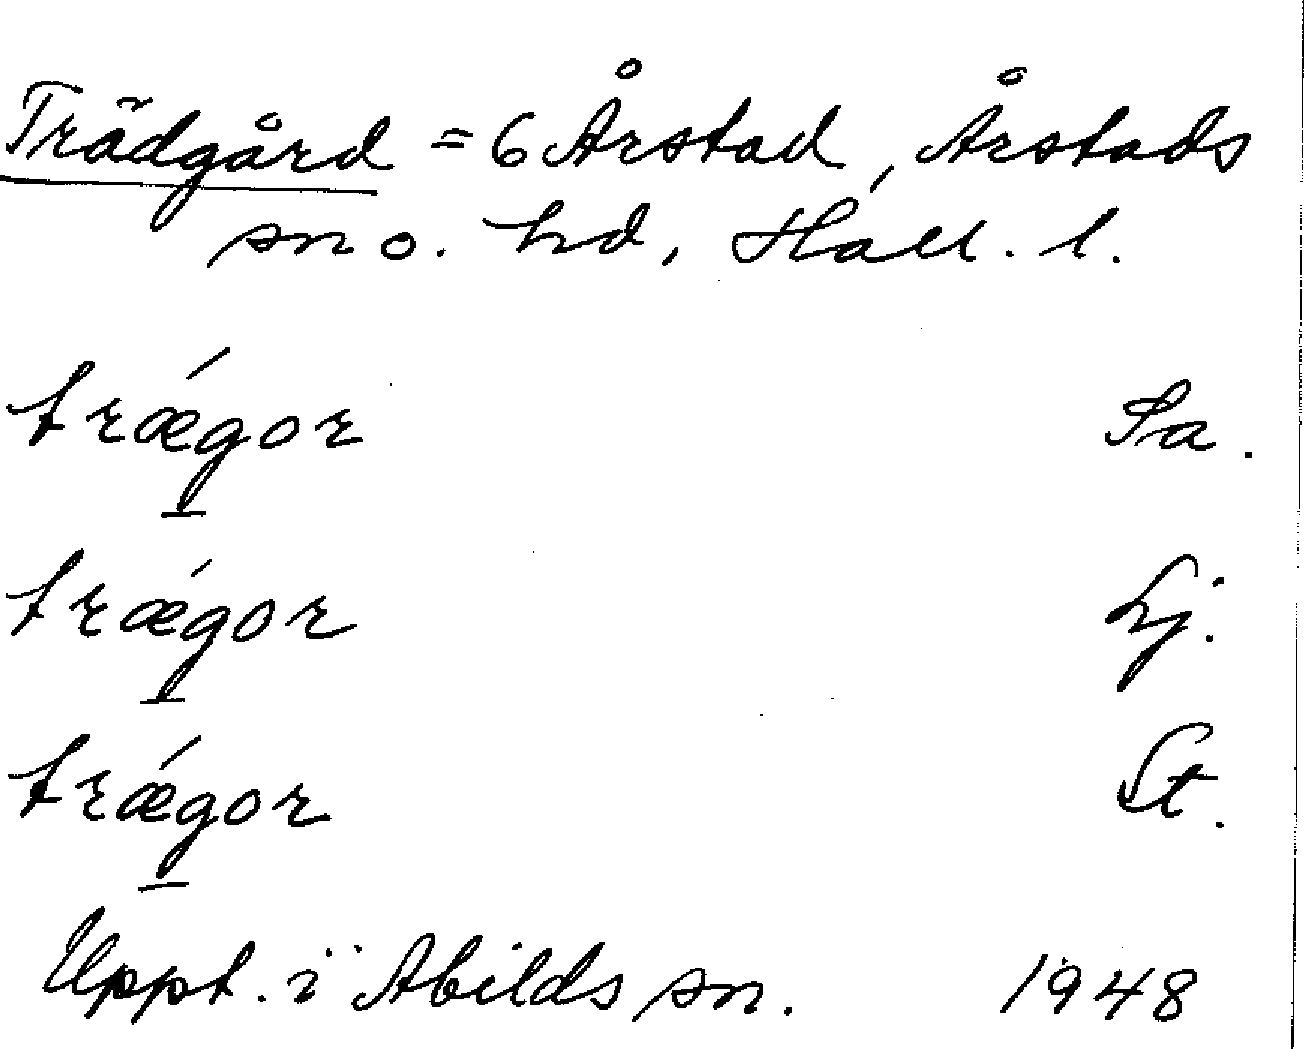 Trädgård = 6 Årstad, Årstads
sn o. hd, Hall. l.
trǽgor Sa.
trǽgor Lj.
trǽgor St.
Uppt. i Abilds sn. 1948